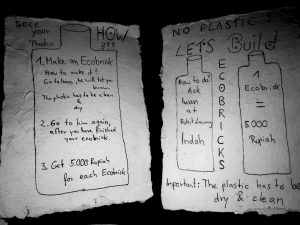 SELL your Plastic
HOW
???
1. Make an Ecobrick
How to make it?
Go to Iwan, he will let you
know.
The plastic has to be clean
&
dry
2. Go to him again,
after you have finished
your ecobrick.
3. Get 5.000 Rupiah
for each Ecobrick
NO PLASTIC
LET'S Build
ECOBRICKS
How to do?
Ask
Iwan
at
Bukit Lawang
Indah
1
Ecobrick
=
5.000
Rupiah
Important: The plastic has to be
dry & clean